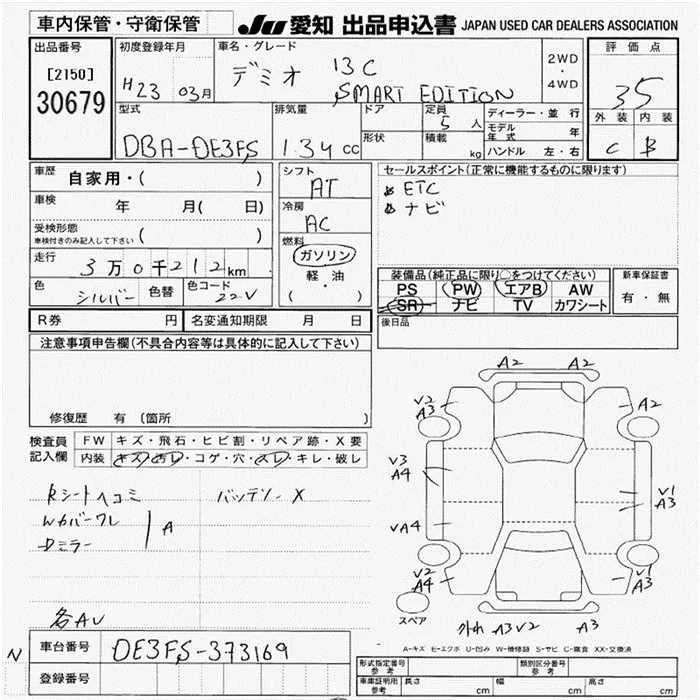 車内保管・守衛保管
JU 愛知 出品申込書 JAPAN USED CAR DEALERS ASSOCIATION
出品番号
[2150]
30679
初度登録年月
H23 03月
車名・グレード
デミオ 13C
SMART EDITION
2WD
・
4WD
評価点
3.5
外装 内装
C B
型式
DBA-DE3FS
排気量
1.34 cc
ドア
形状
定員
5 人
積載
kg
ディーラー・並行
モデル年式 年
ハンドル 左・右
車歴 自家用・( )
車検 年 月( 日)
受検形態
車検付きのみ記入して下さい ( )
走行 3万0千212km
色 シルバー 色替 色コード 22V
シフト
AT
冷房
AC
燃料
ガソリン
軽・油
( )
セールスポイント(正常に機能するものに限ります)
ETC
ナビ
装備品(純正品に限り○をつけてください)
PS PW エアB AW
SR ナビ TV カワシート
新車保証書
有・無
R券 円 名変通知期限 月 日
後日品
注意事項申告欄(不具合内容等は具体的に記入して下さい)
修復歴 有 (箇所 )
検査員記入欄
FW キズ・飛石・ヒビ割・リペア跡・X要
内装 キズ・汚レ・コゲ・穴・スレ・キレ・破レ
Rシートヘコミ バッテリーX
Wカバーワレ
Dミラー
A
各AU
N
車台番号 DE3FS-373169
登録番号
A2 A2
V2
A3
A2
V3
A4
V1
A3
VA4
V2
A4
V1
A3
スペア
外れ A3V2 A3
A-キズ E-エクボ U-凹み W-補修跡 S-サビ C-腐食 XX-交換済
形式指定番号
参考
類別区分番号
参考
車庫証明用
参考
長さ cm 幅 cm 高さ cm